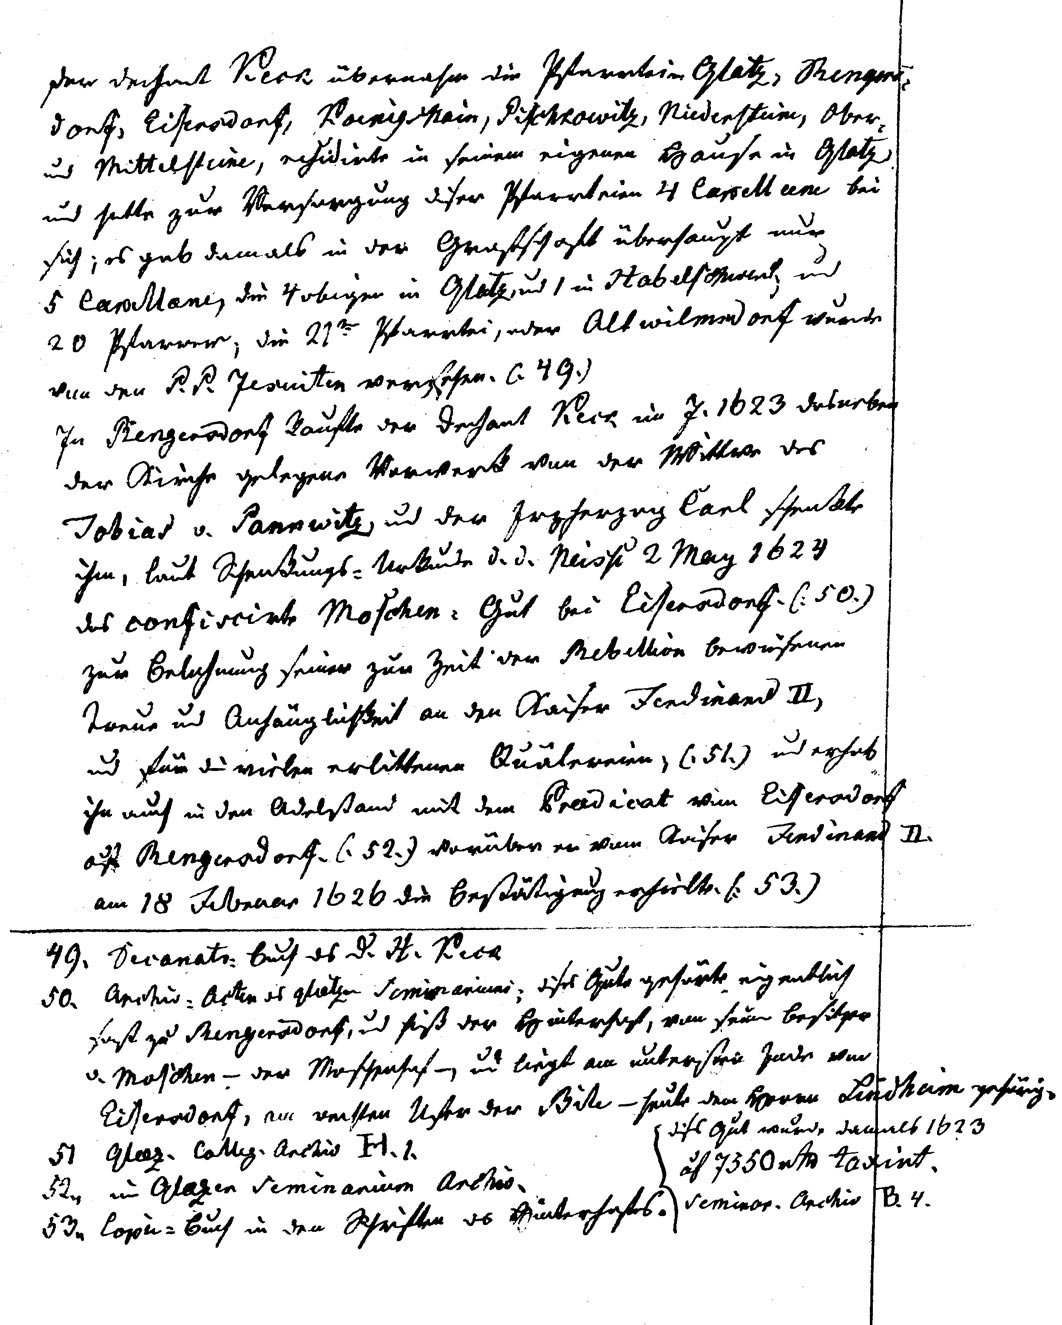 der Dechant Keck übernahm die Pfarrteien Glatz, Rengers-
dorf, Eisersdorf, Koenigshain, Pischkowitz, Niedersteine, Ober-
und Mittelsteine, residirte in seinem eigenen Hause in Glatz,
und hatte zur Versorgung dieser Pfarrteien 4 Capellane bei
sich; es gab damals in der Grafschaft überhaupt nur
5 Capellane, die 4 obigen in Glatz, und 1 in Habelschwerdt, und
20 Pfarrer; die 21te Pfarrtei, oder Altwilmsdorf wurde
von den P. P. Jesuiten versehen. (: 49.)
In Rengersdorf kaufte der Dechant Keck im J. 1623 das neben
der Kirche gelegene Vorwerk von der Wittwe des
Tobias v. Pannwitz, und der Erzherzog Carl schenkte
ihm, laut Schenkungs-Urkunde d. d. Neisse 2 May 1624
das confiscirte Moschen-Gut bei Eisersdorf. (: 50.)
zur Belohnung seiner zur Zeit der Rebellion bewiesenen
Treue und Anhänglichkeit an den Kaiser Ferdinand II,
und für die vielen erlittenen Quälereien, (: 51.) und erhob
ihn auch in den Adelstand mit dem Praedicat von Eisersdorf
auf Rengersdorf. (: 52.) worüber er vom Kaiser Ferdinand II.
am 18 Februar 1626 die Bestätigung erhielt. (: 53.)
49. Decanats-Buch des D. H. Keck
50. Archiv-Acten des glatzer Seminariums; dieses Gut gehörte eigentlich
fast zu Rengersdorf, und hieß der Hinterhof, von seinem Besitzer
v. Moschen – der Moschenhof –, und liegt am untersten Ende von
Eisersdorf, am rechten Ufer der Biele – heute dem Herrn Lindheim gehörig.
dies Gut wurde damals 1623
auf 7350 rth taxirt.
Seminar. Archiv B. 4.
51 Glaz. Colleg. Archiv H. 1.
52. im Glazer Seminarium Archiv.
53. Copie-Buch in den Schriften des Hinterhofes.